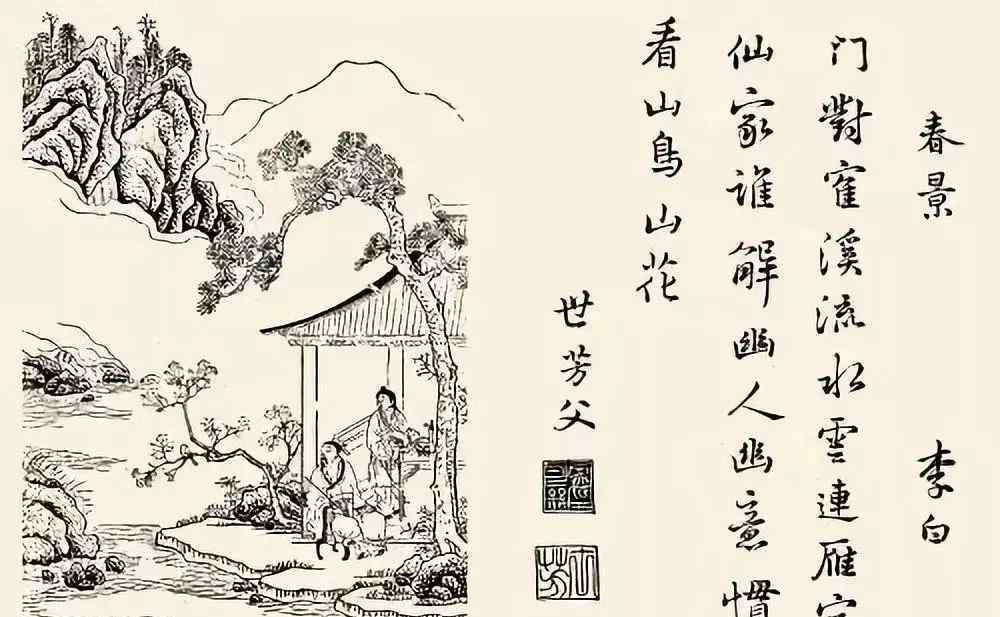 春景 李白
门對寉溪流水雲連雁
仙家誰解幽人幽意慣
看山鳥山花
世芳父